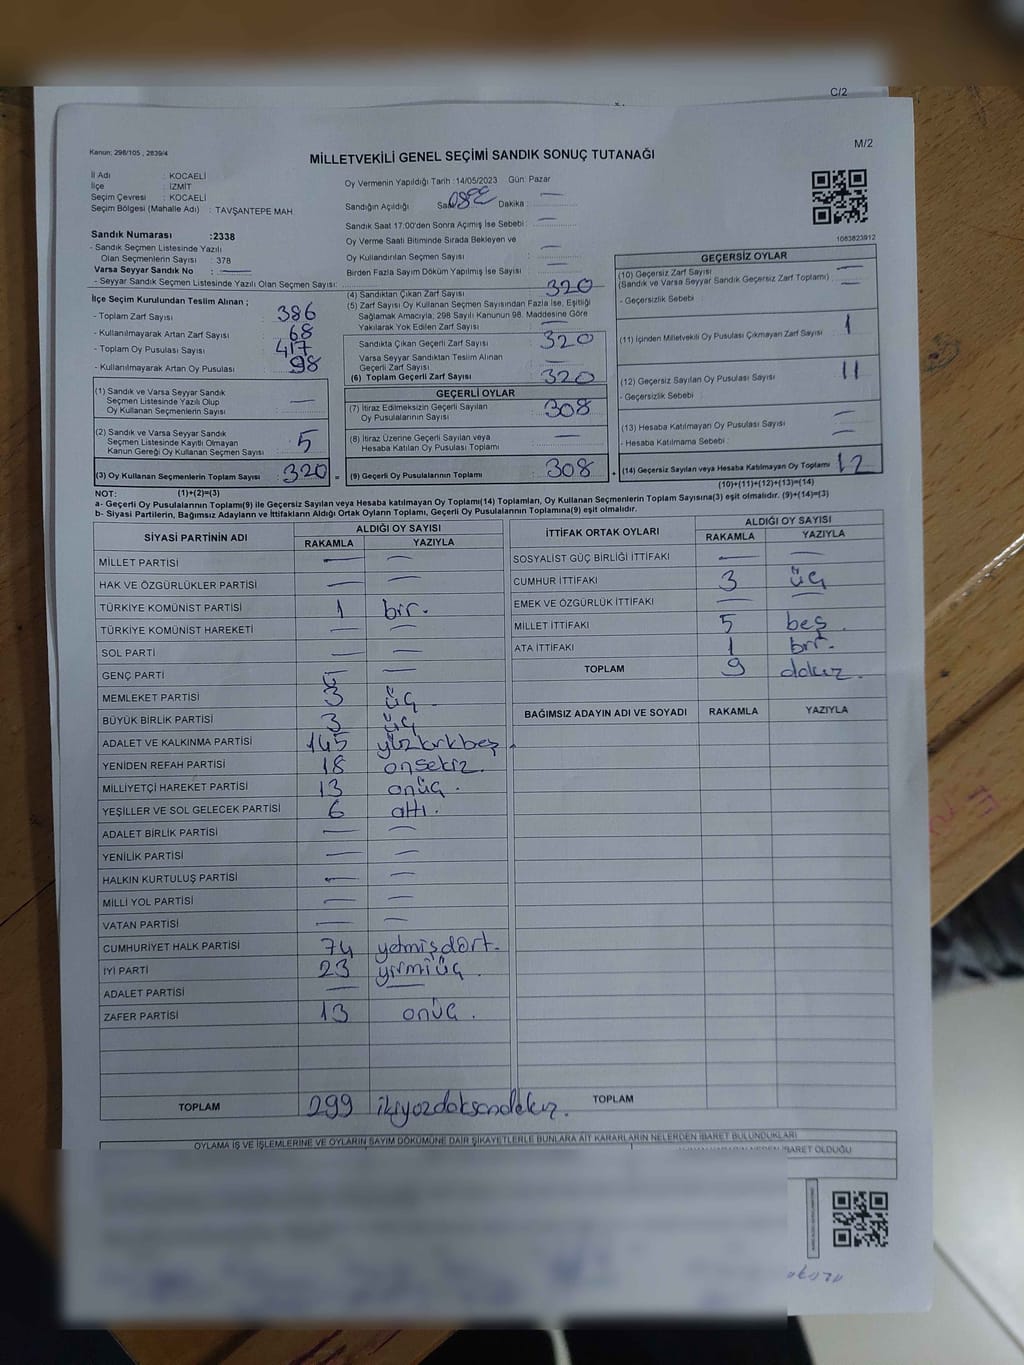 C/2
Kanun: 298/105 , 2839/4
M/2
MİLLETVEKİLİ GENEL SEÇİMİ SANDIK SONUÇ TUTANAĞI
İl Adı : KOCAELİ
İlçe : İZMİT
Seçim Çevresi : KOCAELİ
Seçim Bölgesi (Mahalle Adı) : TAVŞANTEPE MAH
Oy Vermenin Yapıldığı Tarih :14/05/2023 Gün: Pazar
Sandığın Açıldığı Dakika : —
Sandık Saat 17:00'den Sonra Açımış İse Sebebi : —
Oy Verme Saati Bitiminde Sırada Bekleyen ve
Oy Kullandırılan Seçmen Sayısı : —
Birden Fazla Sayım Döküm Yapılmış İse Sayısı : —
1083823912
Sandık Numarası :2338
- Sandık Seçmen Listesinde Yazılı
Olan Seçmenlerin Sayısı : 378
Varsa Seyyar Sandık No : —
- Seyyar Sandık Seçmen Listesinde Yazılı Olan Seçmen Sayısı:
İlçe Seçim Kurulundan Teslim Alınan ;
- Toplam Zarf Sayısı : 386
- Kullanılmayarak Artan Zarf Sayısı : 68
- Toplam Oy Pusulası Sayısı : 417
- Kullanılmayarak Artan Oy Pusulası : 98
(1) Sandık ve Varsa Seyyar Sandık
Seçmen Listesinde Yazılı Olup
Oy Kullanan Seçmenlerin Sayısı : —
(2) Sandık ve Varsa Seyyar Sandık
Seçmen Listesinde Kayıtlı Olmayan
Kanun Gereği Oy Kullanan Seçmen Sayısı : 5
(3) Oy Kullanan Seçmenlerin Toplam Sayısı : 320 =
(4) Sandıktan Çıkan Zarf Sayısı : 320
(5) Zarf Sayısı Oy Kullanan Seçmen Sayısından Fazla İse, Eşitliği
Sağlamak Amacıyla, 298 Sayılı Kanunun 98. Maddesine Göre
Yakılarak Yok Edilen Zarf Sayısı : —
Sandıkta Çıkan Geçerli Zarf Sayısı : 320
Varsa Seyyar Sandıktan Teslim Alınan
Geçerli Zarf Sayısı : —
(6) Toplam Geçerli Zarf Sayısı : 320
GEÇERLİ OYLAR
(7) İtiraz Edilmeksizin Geçerli Sayılan
Oy Pusulalarının Sayısı : 308
(8) İtiraz Üzerine Geçerli Sayılan veya
Hesaba Katılan Oy Pusulası Toplamı : —
(9) Geçerli Oy Pusulalarının Toplamı : 308 +
GEÇERSİZ OYLAR
(10) Geçersiz Zarf Sayısı : —
(Sandık ve Varsa Seyyar Sandık Geçersiz Zarf Toplamı) —
- Geçersizlik Sebebi :
(11) İçinden Milletvekili Oy Pusulası Çıkmayan Zarf Sayısı : 1
(12) Geçersiz Sayılan Oy Pusulası Sayısı : 11
- Geçersizlik Sebebi :
(13) Hesaba Katılmayan Oy Pusulası Sayısı : —
- Hesaba Katılmama Sebebi : —
(14) Geçersiz Sayılan veya Hesaba Katılmayan Oy Toplamı : 12
(10)+(11)+(12)+(13)=(14)
NOT: (1)+(2)=(3)
a- Geçerli Oy Pusulalarının Toplamı(9) ile Geçersiz Sayılan veya Hesaba katılmayan Oy Toplamı(14) Toplamları, Oy Kullanan Seçmenlerin Toplam Sayısına(3) eşit olmalıdır. (9)+(14)=(3)
b- Siyasi Partilerin, Bağımsız Adayların ve İttifakların Aldığı Ortak Oyların Toplamı, Geçerli Oy Pusulalarının Toplamına(9) eşit olmalıdır.
SİYASİ PARTİNİN ADI ALDIĞI OY SAYISI
RAKAMLA YAZIYLA
MİLLET PARTİSİ — —
HAK VE ÖZGÜRLÜKLER PARTİSİ — —
TÜRKİYE KOMÜNİST PARTİSİ 1 bir.
TÜRKİYE KOMÜNİST HAREKETİ — —
SOL PARTİ — —
GENÇ PARTİ — —
MEMLEKET PARTİSİ 3 üç.
BÜYÜK BİRLİK PARTİSİ 3 üç
ADALET VE KALKINMA PARTİSİ 145 yüzkırkbeş.
YENİDEN REFAH PARTİSİ 18 onsekiz.
MİLLİYETÇİ HAREKET PARTİSİ 13 onüç.
YEŞİLLER VE SOL GELECEK PARTİSİ 6 altı.
ADALET BİRLİK PARTİSİ — —
YENİLİK PARTİSİ — —
HALKIN KURTULUŞ PARTİSİ — —
MİLLİ YOL PARTİSİ — —
VATAN PARTİSİ — —
CUMHURİYET HALK PARTİSİ 74 yetmişdört.
İYİ PARTİ 23 yirmiüç.
ADALET PARTİSİ — —
ZAFER PARTİSİ 13 onüç.
TOPLAM 299 ikiyüzdoksandokuz.
İTTİFAK ORTAK OYLARI ALDIĞI OY SAYISI
RAKAMLA YAZIYLA
SOSYALİST GÜÇ BİRLİĞİ İTTİFAKI — —
CUMHUR İTTİFAKI 3 üç
EMEK VE ÖZGÜRLÜK İTTİFAKI — —
MİLLET İTTİFAKI 5 beş.
ATA İTTİFAKI 1 bir.
TOPLAM 9 dokuz.
BAĞIMSIZ ADAYIN ADI VE SOYADI RAKAMLA YAZIYLA
TOPLAM
OYLAMA İŞ VE İŞLEMLERİNE VE OYLARIN SAYIM DÖKÜMÜNE DAİR ŞİKAYETLERLE BUNLARA AİT KARARLARIN NELERDEN İBARET BULUNDUKLARI
İBARET OLDUĞU